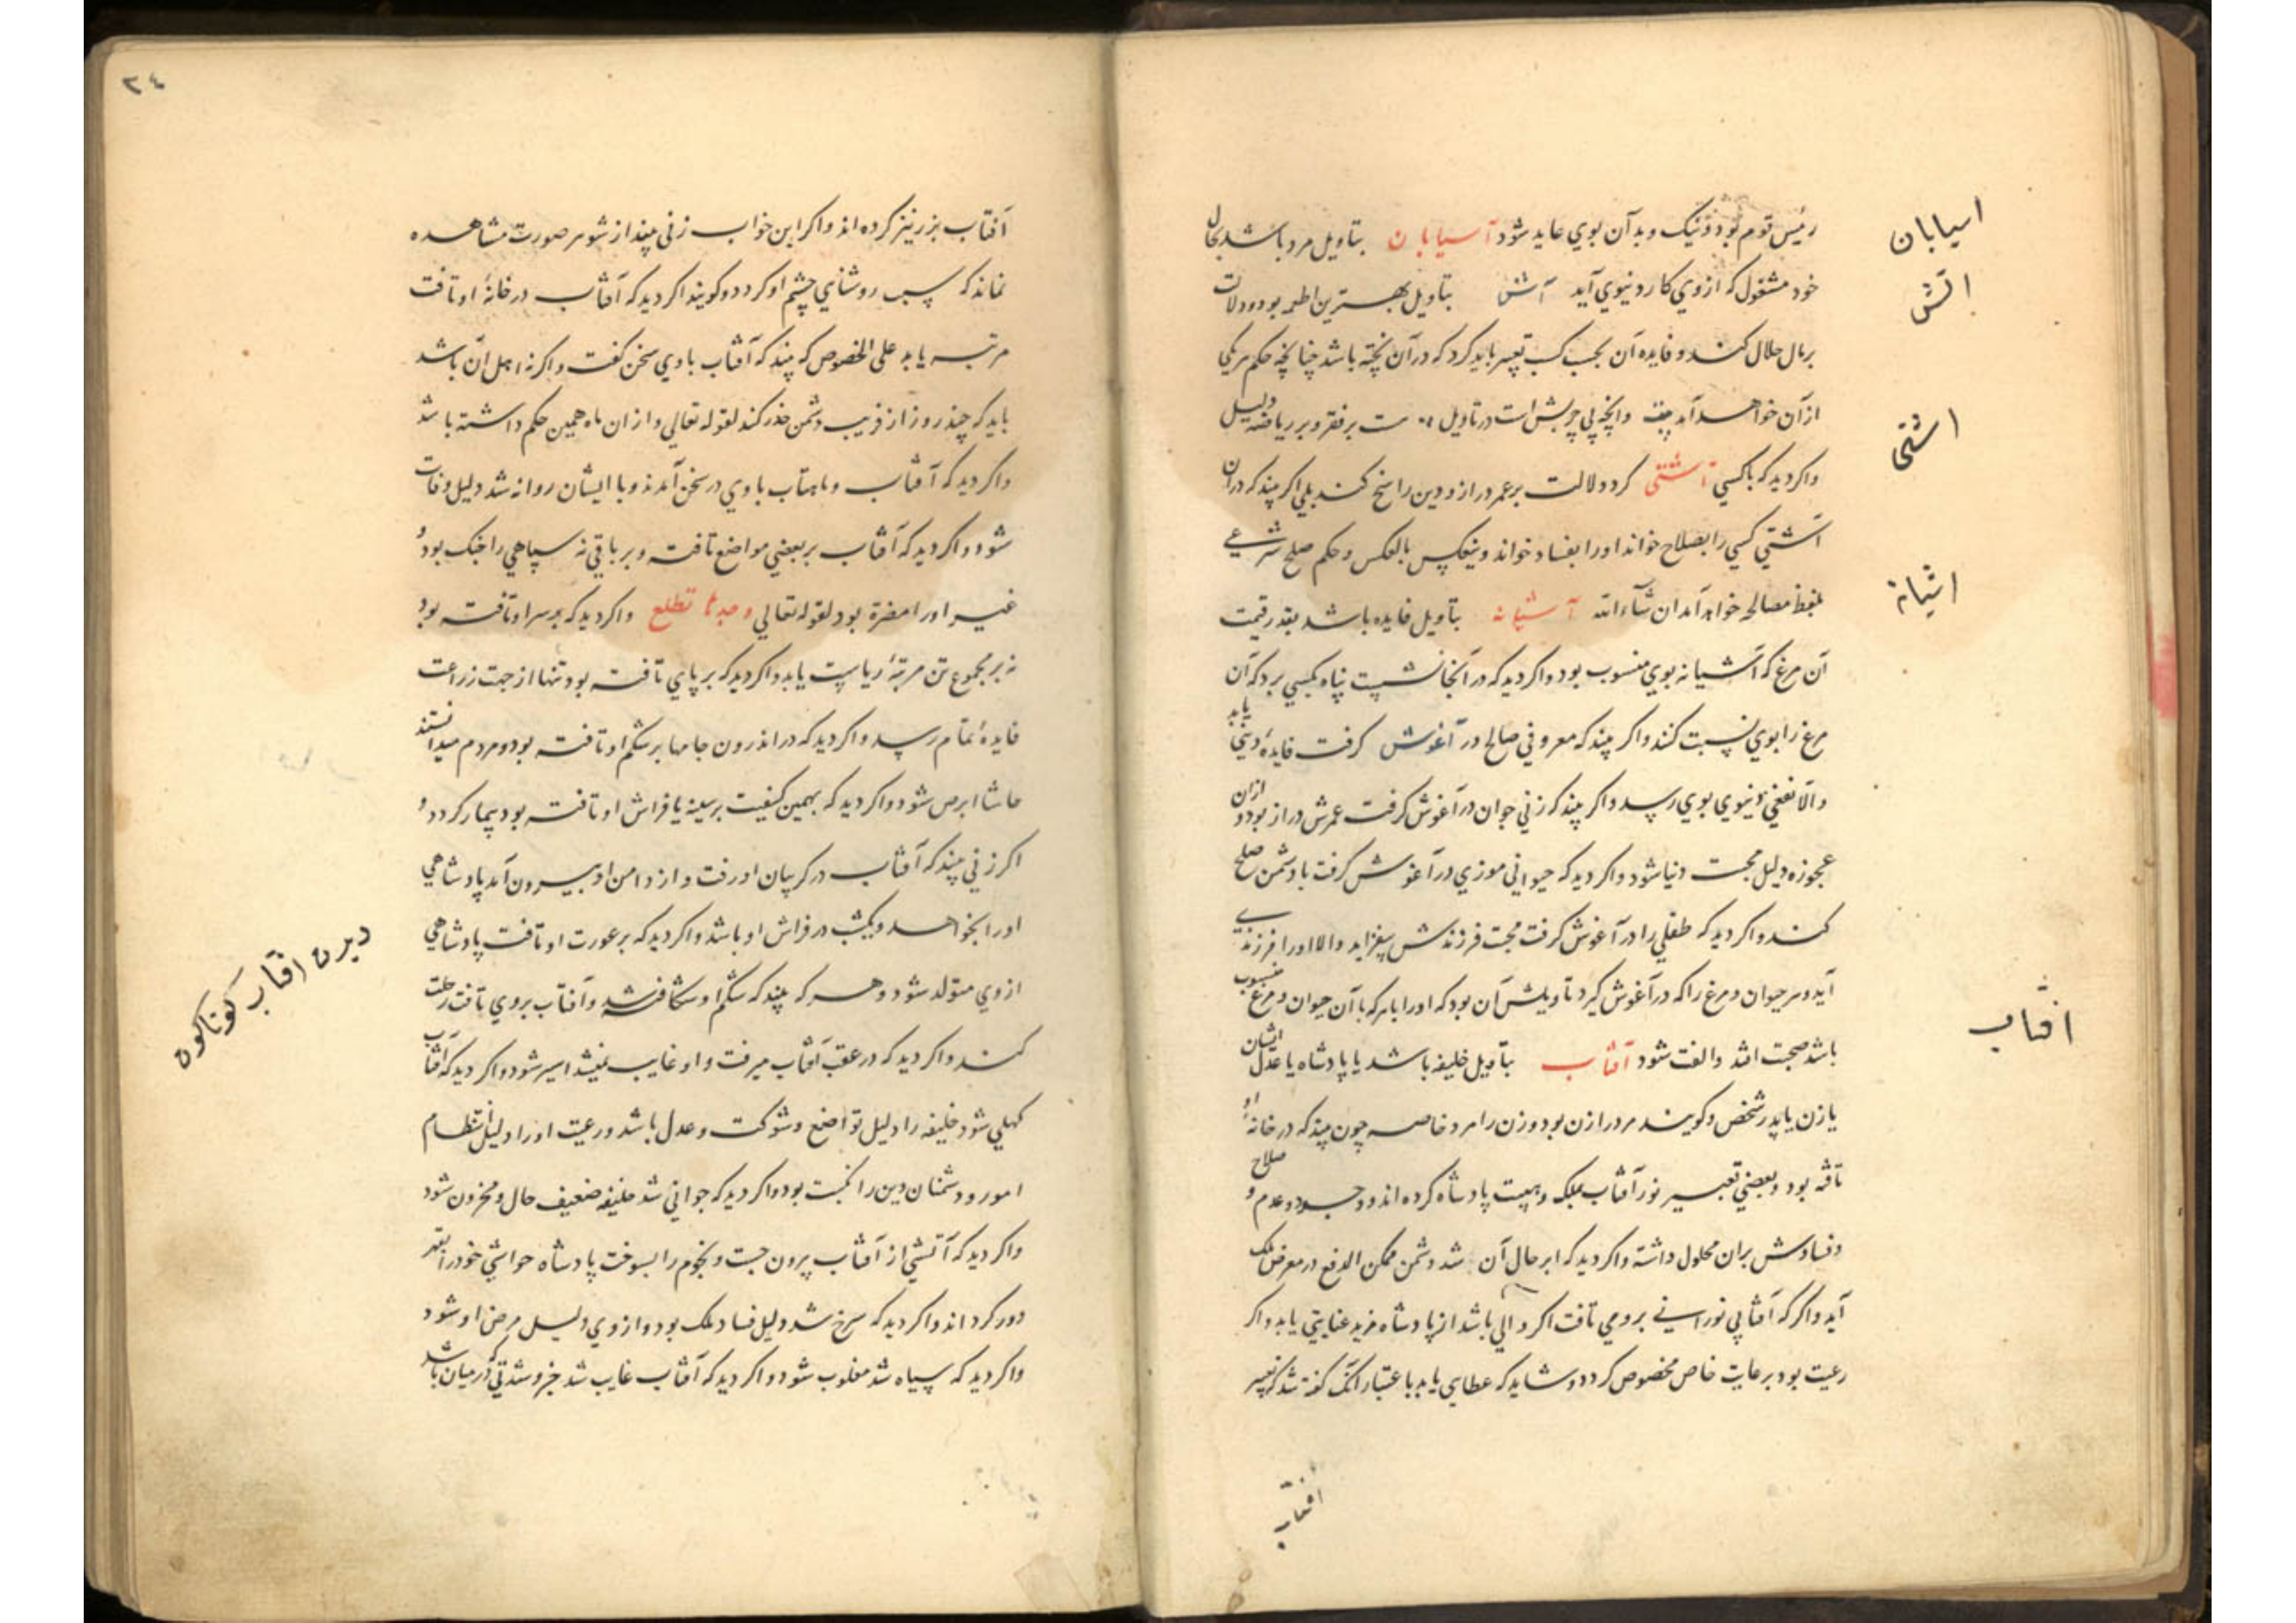 رئیس قوم بود و نیک و بد آن بوي عاید شود آسیابان بتاویل مرد باشد بحال
خود مشغول که ازوي کار دنیوي آید آش بتاویل بهترین اطعمه بود و دلالت
بر مال حلال کند و فایده آن بحسب کسب تعبیر باید کرد که در آن پخته باشد چنانچه حکم هر یکي
از آن خواهد آمد وآنچه بي چربش است در تاویل بر فقر و بر ریاضة دلیل
واکر دید که با کسي آشتی کرد دلالت بر عمر دراز و دین راسخ کند بلي اکر بیند که در آن
آشتي کسي را بصلاح خواند اورا بفساد خواند وینعکس بالعکس و حکم صلح شرعي
بلفظ مصالحه خواهد آمد ان شآء الله آشیانه بتاویل فایده باشد بقدر قیمت
آن مرغ که آشیانه بوي منسوب بود واکر دید که در آنجا نشست پناه بکسي برد که آن
مرغ را بوي نسبت کنند واکر بیند که معروفي صالح در آغوش کرفت فایدهٔ دیني یابد
والّا نفعي دنیوي بوي رسد واکر بیند که زني جوان در آغوش کرفت عمرش دراز بود و ازان
عجوزه دلیل محبت دنیا شود واکر دید که حیواني موزي در آغوش کرفت با دشمن صلح
کند واکر دید که طفلي را در آغوش کرفت محبت فرزندش بیفزاید والا اورا فرزندي
آید وهر حیوان و مرغ را که در آغوش کیرد تاویلش آن بود که اورا با هر که با آن حیوان و مرغ منسوب
باشد صحبت افتد والفت شود آفتاب بتاویل خلیفه باشد یا پادشاه یا عدل ایشان
یا زن یا پدر شخص وکویند مرد را زن بود وزن را مرد خاصه چون بیند که در خانهٔ او
تافته بود و بعضي تعبیر نور آفتاب بملک و هیبت پادشاه کرده اند و وجود و عدم و صلاح
وفسادش بران محمول داشته واکر دید که ابر حایل آن شد دشمن ممکن الدفع در معرض ملک
آید واکر که آفتابي نوراني بروي تافت اکر والي باشد از پادشاه مزید عنایتي یابد واکر
رعیت بود برعایت خاص مخصوص کردد وشاید که عطایي یابد باعتبار آنک کفته شد که تعبیر
آفتاب
اسیابان
اتش
اشتی
اشیانه
افتاب
٢٤
آفتاب بزر نیز کرده اند واکر این خواب زني بیند از شوهر صورت مشاهده
نماند که سبب روشنائي چشم او کردد وکویند اکر دید که آفتاب در خانهٔ او تافت
مرتبه یابد علی الخصوص که بیند که آفتاب با وي سخن کفت واکر نه اهل آن باشد
باید که چند روز از فریب دشمن حذر کند لقوله تعالي و از ان ماه همین حکم داشته باشد
واکر دید که آفتاب وماهتاب با وي در سخن آمدند وبا ایشان روانه شد دلیل وفات
شود واکر دید که آفتاب بر بعضي مواضع تافت و بر باقي نه سپاهي را جنک بود و
غیر اورا مضرة بود لقوله تعالي وجدها تطلع واکر دید که بر سر او تافته بود
نه بر مجموع تن مرتبهٔ ریاست یابد واکر دید که بر پاي تافته بود تنها از جهت زراعت
فایدهٔ تمام رسد واکر دید که در اندرون جامها بر شکم او تافته بود و مردم میدانستند
حاشا ابرص شود واکر دید که بهمین کیفیت بر سینه یا فراش او تافته بود بیمار کردد و
اکر زني بیند که آفتاب در کریبان او رفت و از دامن او بیرون آمد پادشاهي
اورا بخواهد ویکشب در فراش او باشد واکر دید که بر عورت او تافت پادشاهي
ازوي متولد شود وهر که بیند که شکم او شکافته شد و آفتاب بروي تافت رحلت
کند واکر دید که در عقب آفتاب میرفت و او غایب نمیشد اسیر شود واکر دید که آفتاب
کهلي شود خلیفه را دلیل تواضع وشوکت وعدل باشد ورعیت اورا دلیل انتظام
امور ودشمنان دین را نکبت بود واکر دید که جواني شد خلیفه ضعیف حال ومحزون شود
واکر دید که آتشي از آفتاب بیرون جست و نجوم را بسوخت پادشاه حواشي خودرا بقهر
دور کرداند واکر دید که سرخ شد دلیل فساد ملک بود وازوي دلیل مرض او شود
واکر دید که سیاه شد مغلوب شود واکر دید که آفتاب غایب شد که در میان باشد
دیدن افتاب کوناکون